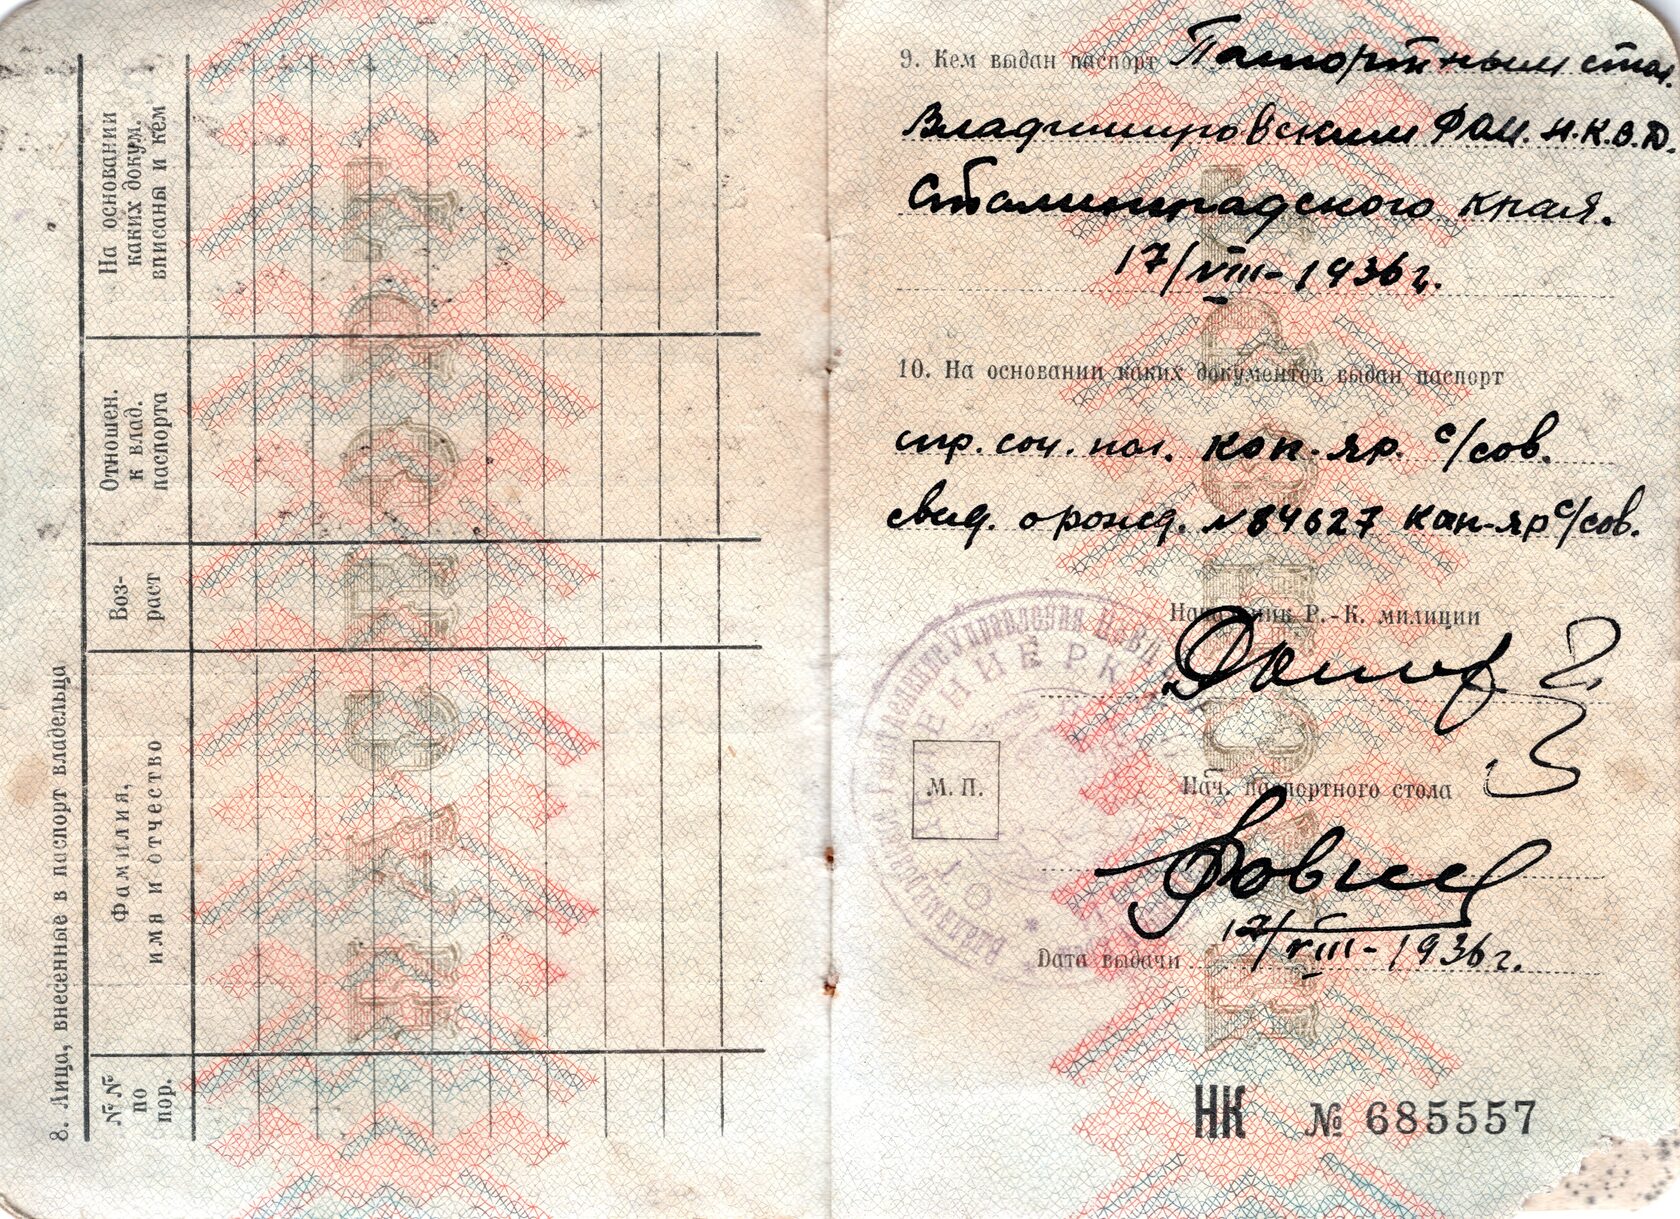 8. Лица, внесенные в паспорт владельца
№№ по пор.
Фамилия, имя и отчество
Воз-раст
Отношен. к влад. паспорта
На основании каких докум. вписаны и кем
ПАСПОРТ
9. Кем выдан паспорт Паспортным стол.
Владимировским Н.К.В.Д.
Сталинградского края.
17/VIII-1936г.
10. На основании каких документов выдан паспорт
спр. соц. пол. Кап-яр. с/сов.
свид. о рожд. №84627 Кап-яр с/сов.
Начальник Р.-К. милиции
М. П.
Нач. паспортного стола
Дата выдачи 17/VIII-1936г.
НК № 685557
ПАСПОРТ